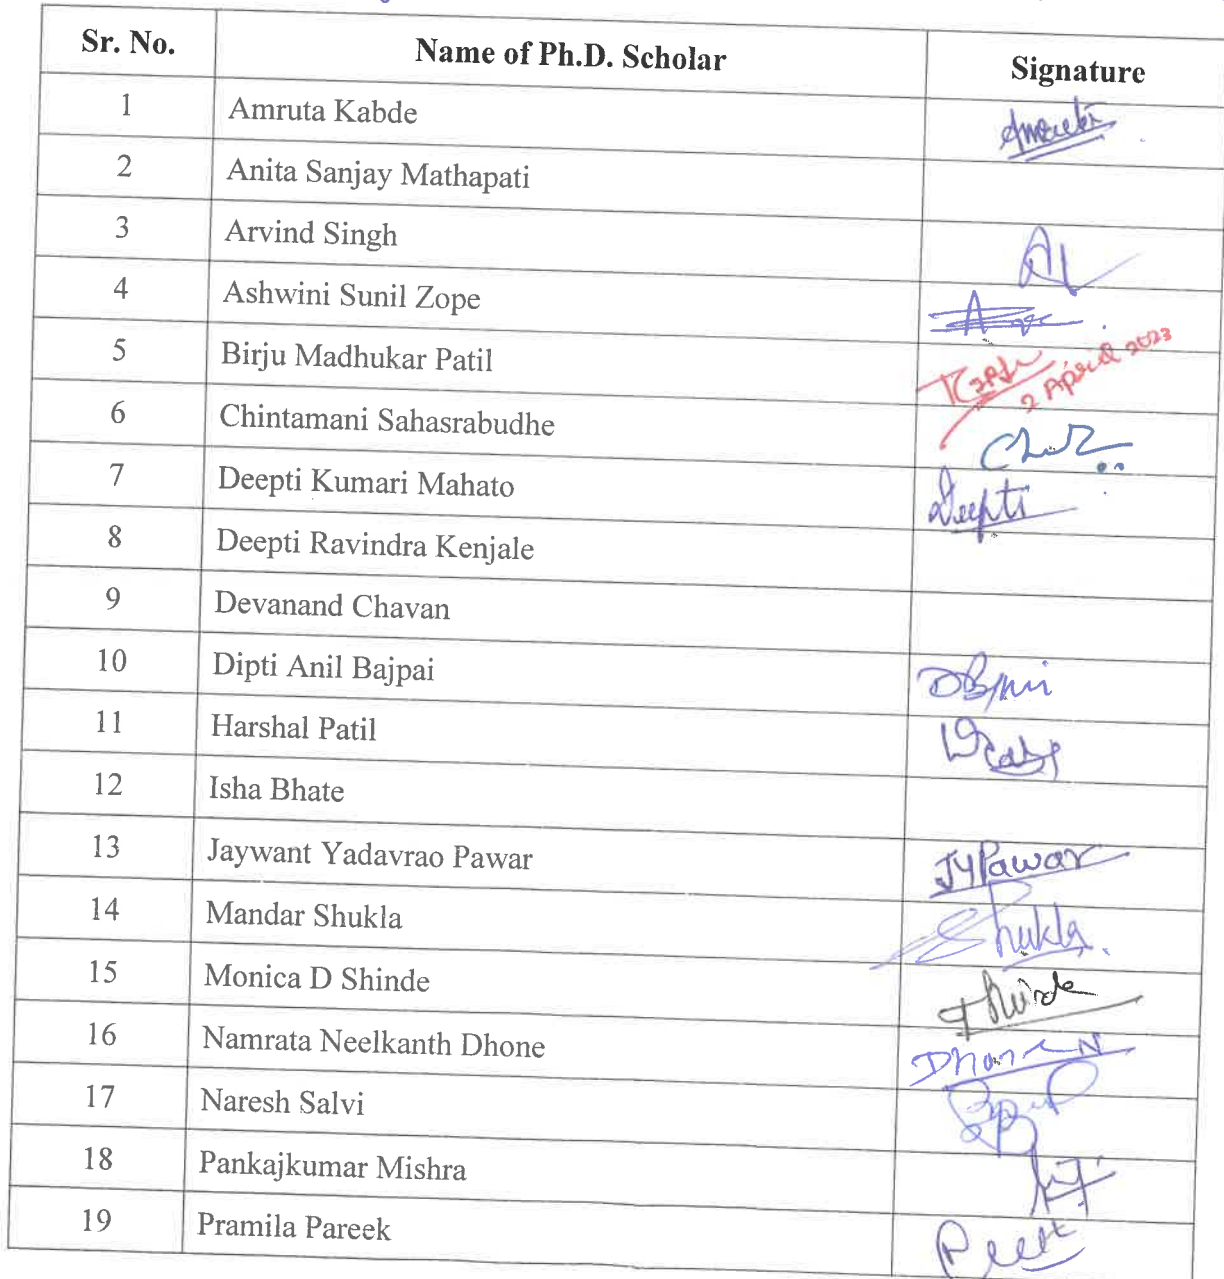 Sr. No. Name of Ph.D. Scholar Signature
1 Amruta Kabde
2 Anita Sanjay Mathapati
3 Arvind Singh
4 Ashwini Sunil Zope
5 Birju Madhukar Patil 2 April 2023
6 Chintamani Sahasrabudhe
7 Deepti Kumari Mahato Deepti
8 Deepti Ravindra Kenjale
9 Devanand Chavan
10 Dipti Anil Bajpai
11 Harshal Patil
12 Isha Bhate
13 Jaywant Yadavrao Pawar JYPawar
14 Mandar Shukla Shukla
15 Monica D Shinde
16 Namrata Neelkanth Dhone
17 Naresh Salvi
18 Pankajkumar Mishra
19 Pramila Pareek